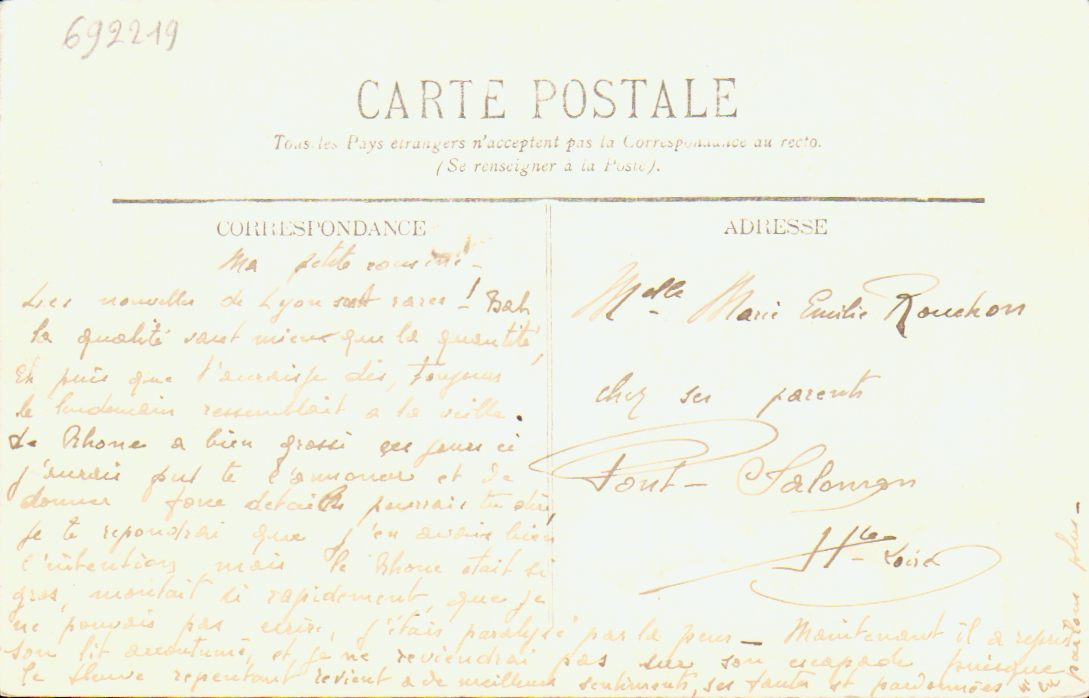 692219
CARTE POSTALE
Tous les Pays étrangers n'acceptent pas la Correspondance au recto.
(Se renseigner à la Poste).
CORRESPONDANCE
Ma petite cousine -
Les nouvelles de Lyon sont rares ! Bah
la qualité vaut mieux que la quantité,
Et puis que t'aurais-je dis, toujours
le lendemain ressemblait a la veille.
Le Rhone a bien grossi ces jours ci
j'aurais pus te l'annoncer et te
donner force details pourrais tu dire,
je te repondrai que j'en avais bien
l'intention, mais le Rhone était si
gros, montait si rapidement, que je
ne pouvais pas ecrire, j'étais paralysé par la peur - Maintenant il a repris
son lit accoutumé, et je ne reviendrai pas sur son escapade puisque
le fleuve repentant revient a de meilleurs sentiments, ses fautes et pardonnées
parlons plus -
ADRESSE
Melle Marie Emilie Rouchon
chez ses parents
Pont-Salomon
Hte-Loire